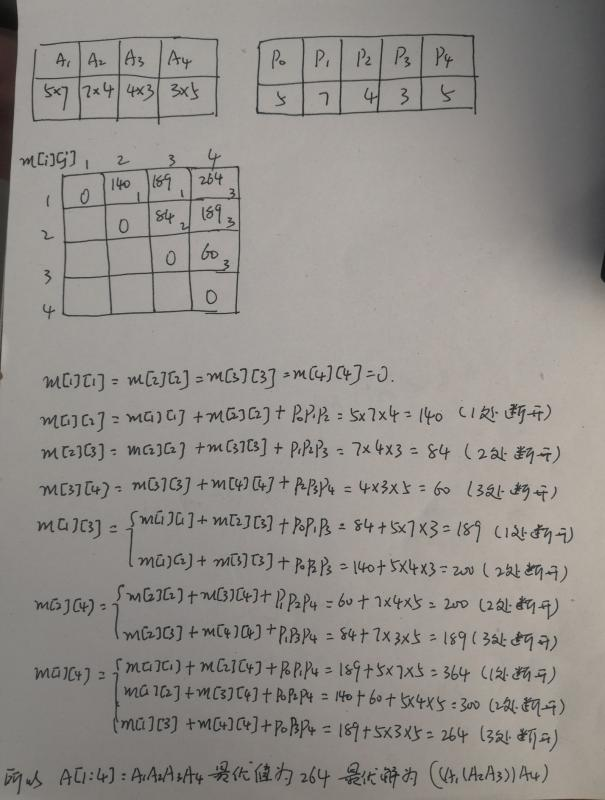 A₁ A₂ A₃ A₄
5×7 7×4 4×3 3×5
P₀ P₁ P₂ P₃ P₄
5 7 4 3 5
m[i][j] 1 2 3 4
1 0 140₁ 189₁ 264₃
2 0 84₂ 189₃
3 0 60₃
4 0
m[1][1] = m[2][2] = m[3][3] = m[4][4] = 0.
m[1][2] = m[1][1] + m[2][2] + P₀P₁P₂ = 5×7×4 = 140 (1处断开)
m[2][3] = m[2][2] + m[3][3] + P₁P₂P₃ = 7×4×3 = 84 (2处断开)
m[3][4] = m[3][3] + m[4][4] + P₂P₃P₄ = 4×3×5 = 60 (3处断开)
m[1][3] = { m[1][1] + m[2][3] + P₀P₁P₃ = 84+5×7×3 = 189 (1处断开)
m[1][2] + m[3][3] + P₀P₂P₃ = 140+5×4×3 = 200 (2处断开)
m[2][4] = { m[2][2] + m[3][4] + P₁P₂P₄ = 60+7×4×5 = 200 (2处断开)
m[2][3] + m[4][4] + P₁P₃P₄ = 84+7×3×5 = 189 (3处断开)
m[1][4] = { m[1][1] + m[2][4] + P₀P₁P₄ = 189+5×7×5 = 364 (1处断开)
m[1][2] + m[3][4] + P₀P₂P₄ = 140+60+5×4×5 = 300 (2处断开)
m[1][3] + m[4][4] + P₀P₃P₄ = 189+5×3×5 = 264 (3处断开)
所以 A[1:4] = A₁A₂A₃A₄ 最优值为 264 最优解为 ((A₁(A₂A₃))A₄)